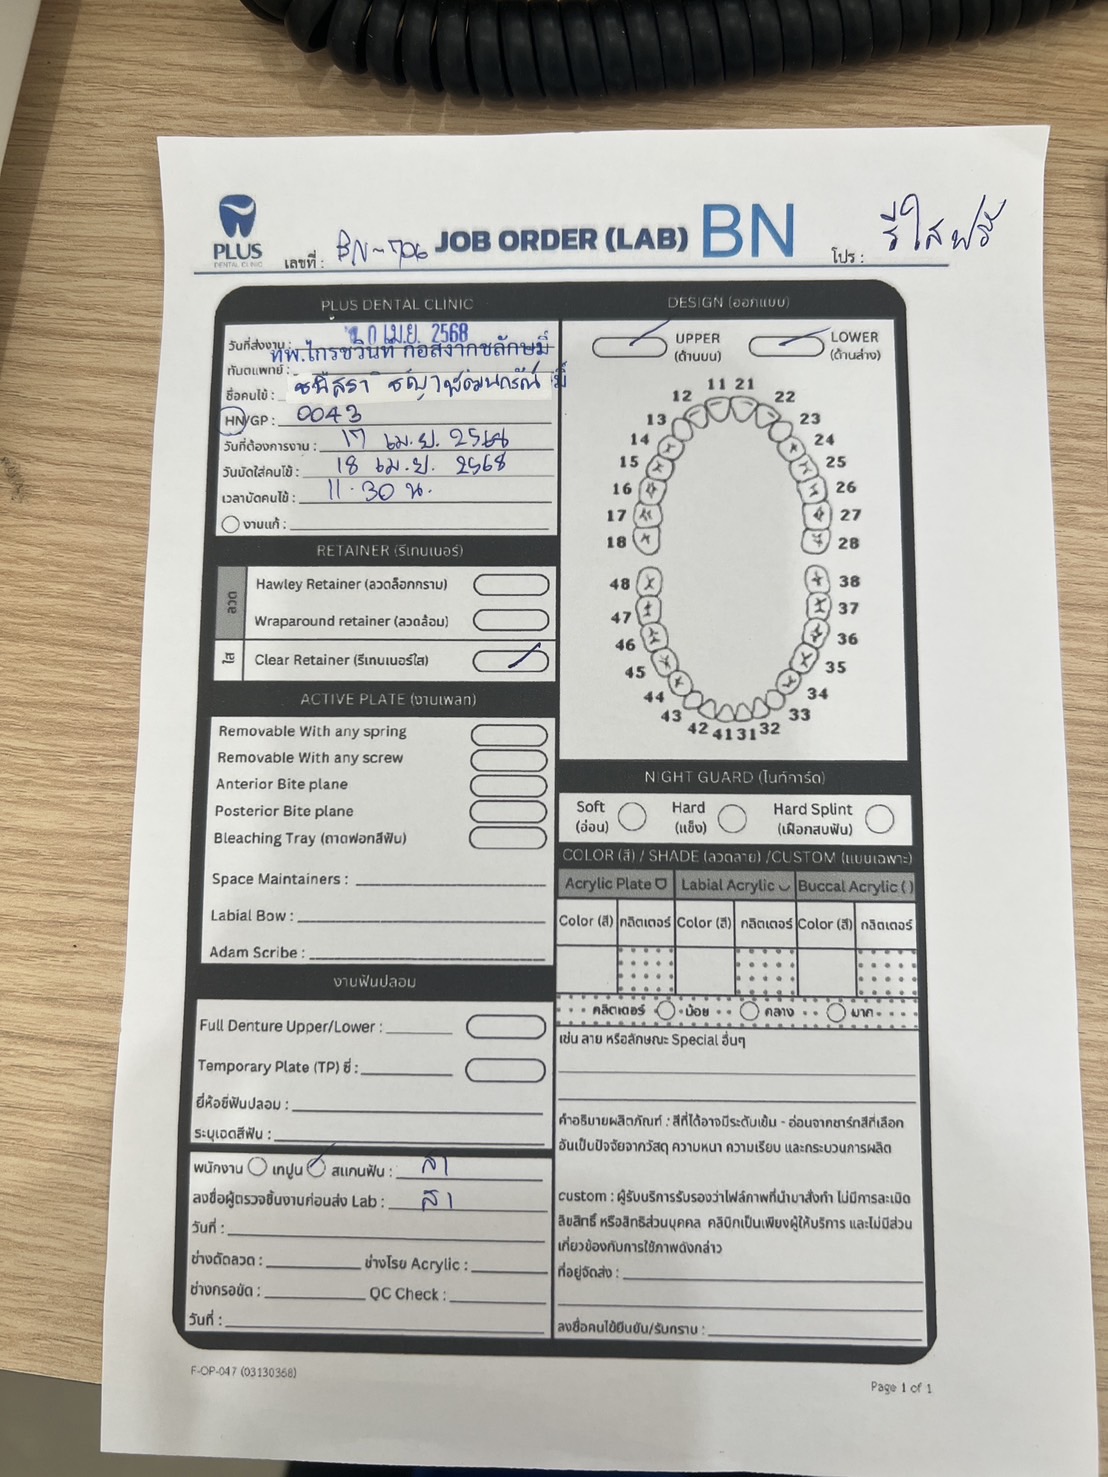 PLUS
DENTAL CLINIC
เลขที่ : BN-706 JOB ORDER (LAB) BN โปร : รีใสฟรี
PLUS DENTAL CLINIC
วันที่ส่งงาน : 10 เม.ย. 2568
ทันตแพทย์ : ทพ.ไกรชวินท์
ชื่อคนไข้ :
HN/GP : 0043
วันที่ต้องการงาน : 17 เม.ย. 2568
วันนัดใส่คนไข้ : 18 เม.ย. 2568
เวลานัดคนไข้ : 11.30 น.
งานแก้ :
RETAINER (รีเทนเนอร์)
ลวด
Hawley Retainer (ลวดล็อกกราม)
Wraparound retainer (ลวดล้อม)
ใส
Clear Retainer (รีเทนเนอร์ใส)
ACTIVE PLATE (งานเพลท)
Removable With any spring
Removable With any screw
Anterior Bite plane
Posterior Bite plane
Bleaching Tray (ถาดฟอกสีฟัน)
Space Maintainers :
Labial Bow :
Adam Scribe :
งานฟันปลอม
Full Denture Upper/Lower :
Temporary Plate (TP) ซี่ :
ยี่ห้อซี่ฟันปลอม :
ระบุเฉดสีฟัน :
พนักงาน เทปูน สแกนฟัน : สา
ลงชื่อผู้ตรวจชิ้นงานก่อนส่ง Lab : สา
วันที่ :
ช่างดัดลวด : ช่างโรย Acrylic :
ช่างกรอขัด : QC Check :
วันที่ :
DESIGN (ออกแบบ)
UPPER LOWER
(ด้านบน) (ด้านล่าง)
11 21
12 22
13 23
14 24
15 25
16 26
17 27
18 28
48 38
47 37
46 36
45 35
44 34
43 33
42 41 31 32
NIGHT GUARD (ไนท์การ์ด)
Soft Hard Hard Splint
(อ่อน) (แข็ง) (เฝือกสบฟัน)
COLOR (สี) / SHADE (ลวดลาย) /CUSTOM (แบบเฉพาะ)
Acrylic Plate Labial Acrylic Buccal Acrylic ( )
Color (สี) กลิตเตอร์ Color (สี) กลิตเตอร์ Color (สี) กลิตเตอร์
กลิตเตอร์ น้อย กลาง มาก
เช่น ลาย หรือลักษณะ Special อื่นๆ
คำอธิบายผลิตภัณฑ์ : สีที่ได้อาจมีระดับเข้ม - อ่อนจากชาร์ทสีที่เลือก
อันเป็นปัจจัยจากวัสดุ ความหนา ความเรียบ และกระบวนการผลิต
custom : ผู้รับบริการรับรองว่าไฟล์ภาพที่นำมาสั่งทำ ไม่มีการละเมิด
ลิขสิทธิ์ หรือสิทธิส่วนบุคคล คลินิกเป็นเพียงผู้ให้บริการ และไม่มีส่วน
เกี่ยวข้องกับการใช้ภาพดังกล่าว
ที่อยู่จัดส่ง :
ลงชื่อคนไข้ยืนยัน/รับทราบ :
F-OP-047 (03130368)
Page 1 of 1